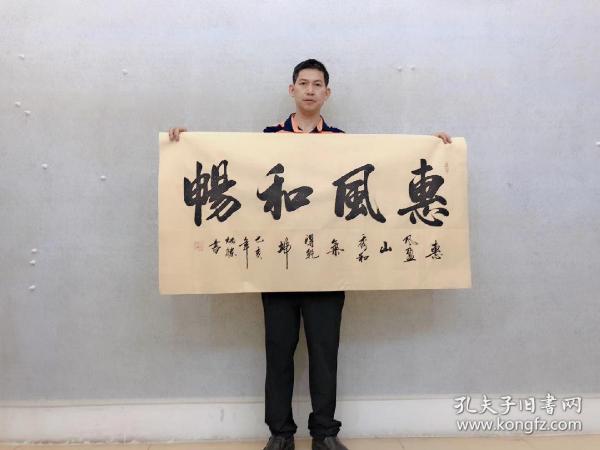 惠風和暢
惠風盈山秀和氣得乾坤
己亥年
書
孔夫子旧書网
www.kongfz.com